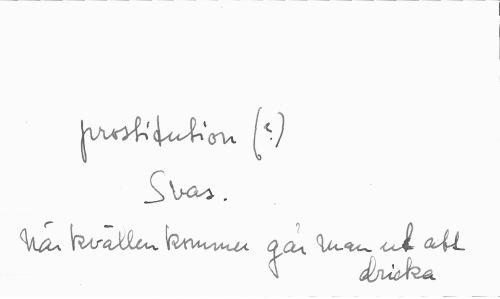 prostitution (?)
Svas.
När kvällen kommer går man ut att
dricka